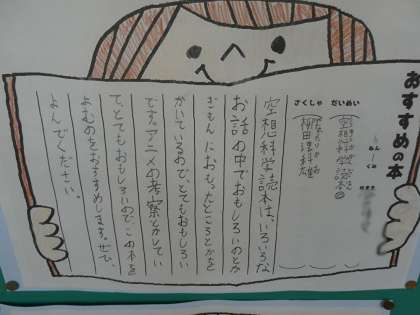 おすすめの本
ねん くみ
なまえ
だいめい
空想科学読本
さくしゃ
柳田理科雄
空想科学読本は、いろいろな
お話の中でおもしろいのとか
ぎもんにおもったところとかを
かいているので、とてもおもしろい
です。アニメの考察とかしてい
て、とてもおもしろいので、この本を
よむのをおすすめします。ぜひ、
よんでください。